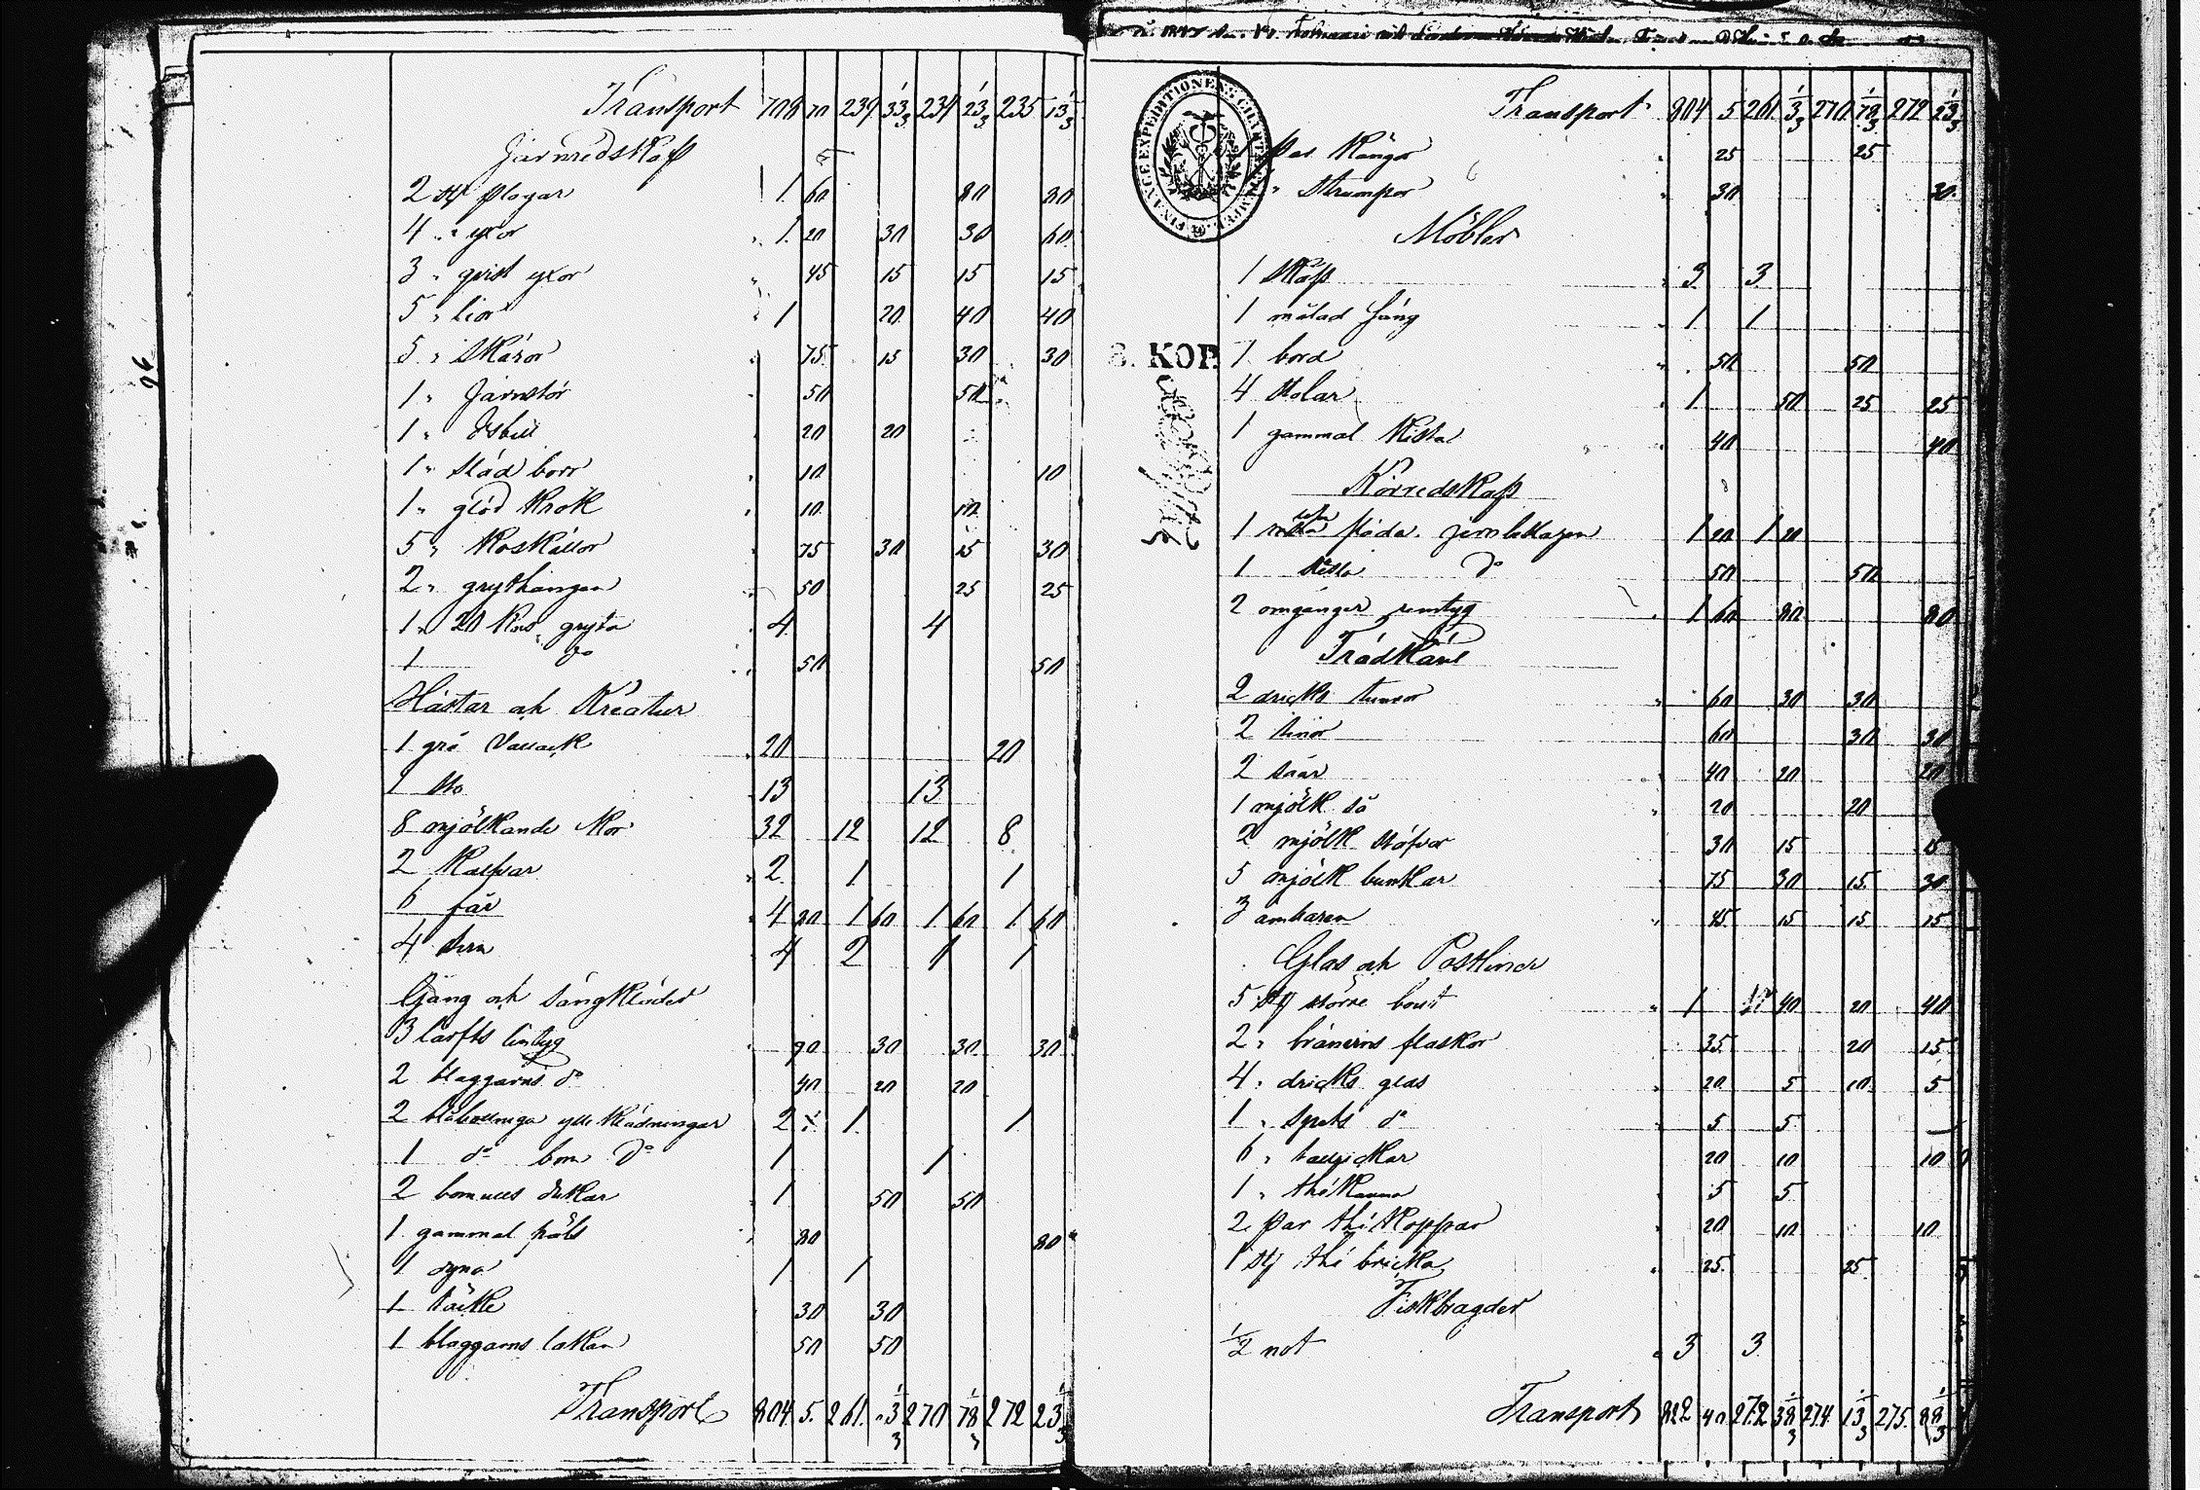 Transport 708 70 239 33 1/3 234 23 1/3 235 13 1/3
Järnredskap
2 st plogar 1. 60 80 80
4 " yxor 1. 20 30 30 60
3 " qvist yxor 45 15 15 15
5 " liar 1 20 40 40
5 " Skäror 75 15 30 30
1 " Järnstör 50 50
1 " Isbill 20 20
1 " städ borr 10 10
1 " glöd krok 10 10
5 " Koskällor 75 30 15 30
2 " grythängen 50 25 25
1 " 20 Kans gryta 4 4
1 do 50 50
Hästar och Kreatur
1 grå Vallack 20 20
1 sto 13 13
8 mjölkande Kor 32 12 12 8
2 Kalfvar 2 1 1
6 får 4 80 1 60 1 60 1 60
4 4 2 1 1
Gång och sängkläder
3 larfts lintyg 90 30 30 30
2 blaggarns do 40 20 20
2 ylle klädningar 2 1 1
1 do bom do 1 1
2 bomulls dukar 1 50 50
1 gammal päls 80 80
1 dyna 1 1
1 täcke 30 30
1 blaggarns lakan 50 50
Transport 804 5 261 3 1/3 270 78 1/3 272 23 1/3
96
Transport 804 5 261 3 1/3 270 78 1/3 272 23 1/3
par Kängor 25 25
" strumpor 30 30
Möbler
1 Skåp 3 3
1 målad säng 1 1
1 bord 50 50
4 stolar 1 50 25 25
1 gammal Kista 40 40
Körredskap
1 20 1 20
1 do 50 50
2 omgångar remtyg 1 60 80 80
Trädkäril
2 dricks tunnor 60 30 30
2 tinor 60 30 30
2 såar 40 20 20
1 mjölk så 20 20
2 mjölk stäfvor 30 15 15
5 mjölk bunkar 75 30 15 30
3 ambaren 45 15 15 15
Glas och Postliner
5 st större 1 40 20 40
2 " bränvins flaskor 35 20 15
4 " dricks glas 20 5 10 5
1 " spets do 5 5
6 " tallrickar 20 10 10
1 " thékanna 5 5
2 par thé Koppar 20 10 10
1 st thé bricka 25 25
Fiskbragder
1/2 not 3 3
Transport 822 40 272 38 1/3 274 13 1/3 275 88 1/3
FINANCE EXPEDITIONENS CHARTÆ
KOP.